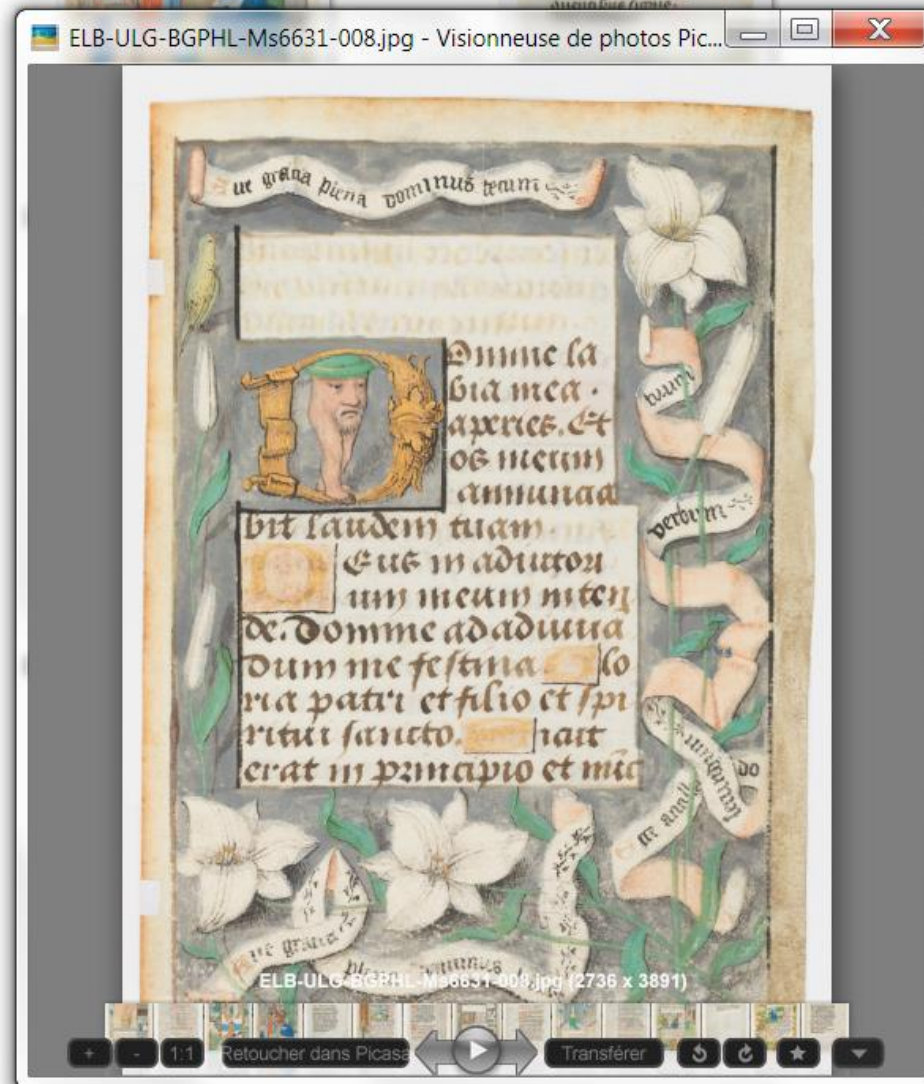 ELB-ULG-BGPHL-Ms6631-008.jpg - Visionneuse de photos Pic...
Aue gracia plena dominus tecum
Domine la
bia mea.
aperies. Et
os meum
annuncia
bit laudem tuam.
Deus in adiutori
um meum inten
de. Domine ad adiuua
dum me festina. Glo
ria patri et filio et spi
ritui sancto. Sicut
erat in principio et nūc
tuum
verbum
secundum
do
cce ancil
Aue gracia
plena dominus
ELB-ULG-BGPHL-Ms6631-008.jpg (2736 x 3891)
+ - 1:1 Retoucher dans Picasa Transférer